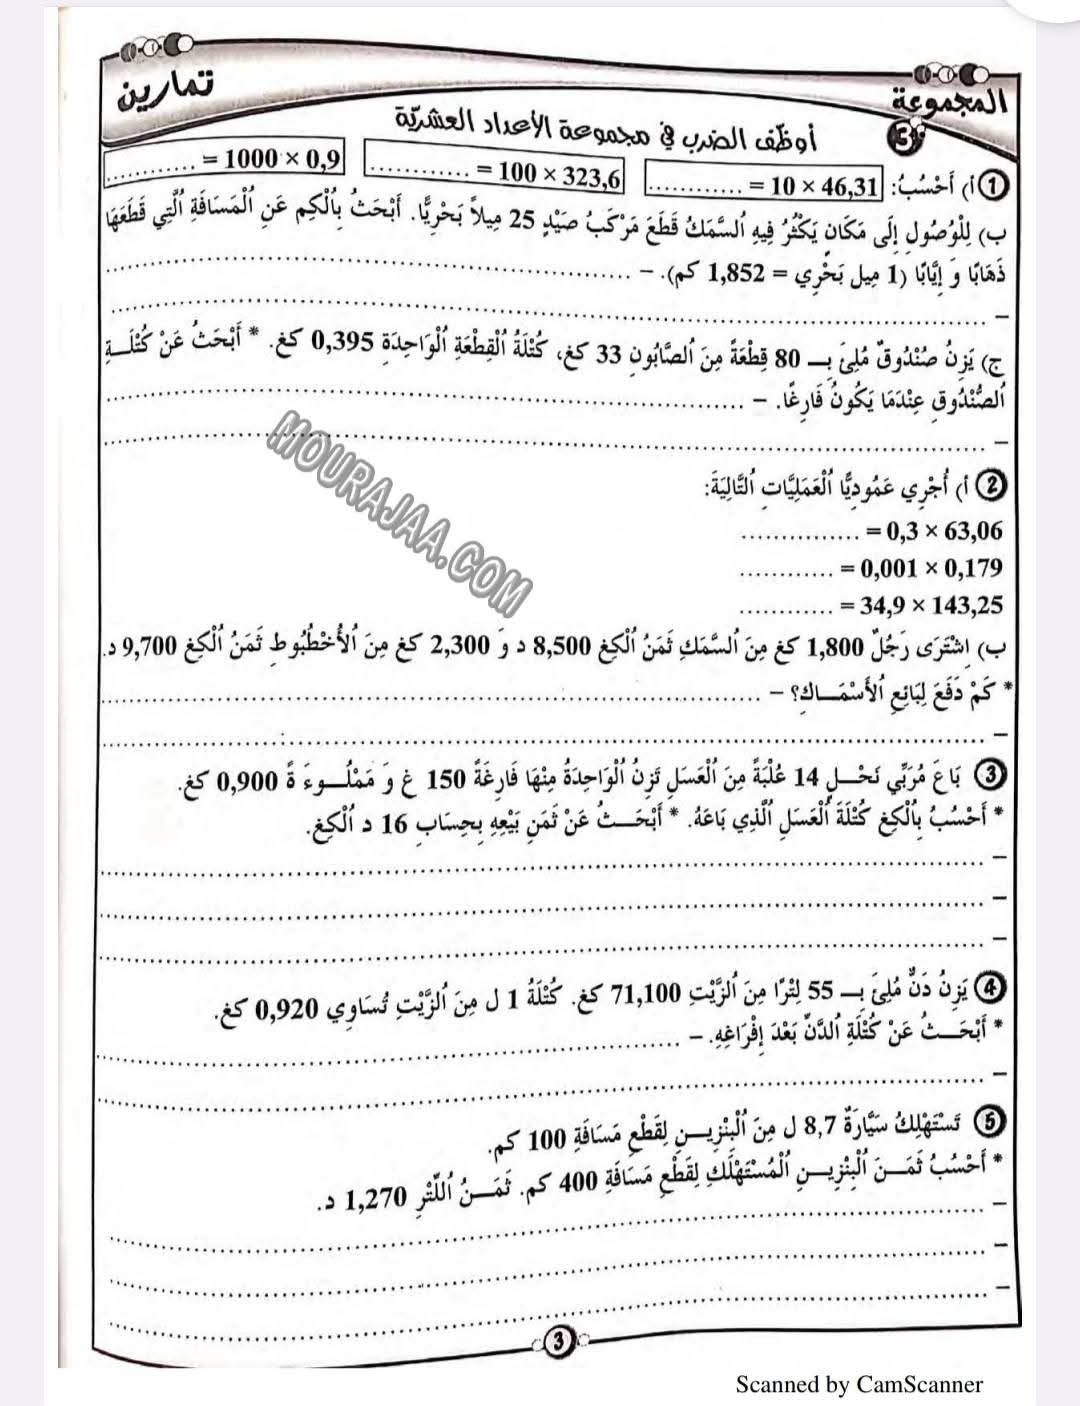 تمارين
المجموعة
3
أوظّف الضرب في مجموعة الأعداد العشريّة
① أ) أَحْسُبُ: 46,31 × 10 = ............ 323,6 × 100 = ............ 0,9 × 1000 = ............
ب) لِلْوُصُولِ إِلَى مَكَانٍ يَكْثُرُ فِيهِ ٱلسَّمَكُ قَطَعَ مَرْكَبُ صَيْدٍ 25 مِيلاً بَحْرِيًّا. أَبْحَثُ بِٱلْكِم عَنِ ٱلْمَسَافَةِ ٱلَّتِي قَطَعَهَا
ذَهَابًا وَ إِيَّابًا (1 مِيل بَحْرِي = 1,852 كم). – ............
– ............
ج) يَزِنُ صُنْدُوقٌ مُلِئَ بِــ 80 قِطْعَةً مِنَ ٱلصَّابُونِ 33 كغ، كُتْلَةُ ٱلْقِطْعَةِ ٱلْوَاحِدَةِ 0,395 كغ. * أَبْحَثُ عَنْ كُتْلَــةِ
ٱلصُّنْدُوقِ عِنْدَمَا يَكُونُ فَارِغًا. – ............
– ............
② أ) أُجْرِي عَمُودِيًّا ٱلْعَمَلِيَّاتِ ٱلتَّالِيَةَ:
63,06 × 0,3 = ............
0,179 × 0,001 = ............
143,25 × 34,9 = ............
ب) اِشْتَرَى رَجُلٌ 1,800 كغ مِنَ ٱلسَّمَكِ ثَمَنُ ٱلْكِغ 8,500 د وَ 2,300 كغ مِنَ ٱلْأُخْطُبُوطِ ثَمَنُ ٱلْكِغ 9,700 د.
* كَمْ دَفَعَ لِبَائِعِ ٱلأَسْمَــاكِ؟ – ............
– ............
③ بَاعَ مُرَبِّي نَحْــلٍ 14 عُلْبَةً مِنَ ٱلْعَسَلِ تَزِنُ ٱلْوَاحِدَةُ مِنْهَا فَارِغَةً 150 غ وَ مَمْلُــوءَ ةً 0,900 كغ.
* أَحْسُبُ بِٱلْكِغ كُتْلَةَ ٱلْعَسَلِ ٱلَّذِي بَاعَهُ. * أَبْحَــثُ عَنْ ثَمَنِ بَيْعِهِ بِحِسَابِ 16 د ٱلْكِغ.
– ............
– ............
– ............
④ يَزِنُ دَنٌّ مُلِئَ بِــ 55 لِتْرًا مِنَ ٱلزَّيْتِ 71,100 كغ. كُتْلَةُ 1 ل مِنَ ٱلزَّيْتِ تُسَاوِي 0,920 كغ.
* أَبْحَــثُ عَنْ كُتْلَةِ ٱلدَّنِّ بَعْدَ إِفْرَاغِهِ. – ............
– ............
⑤ تَسْتَهْلِكُ سَيَّارَةٌ 8,7 ل مِنَ ٱلْبَنْزِيــنِ لِقَطْعِ مَسَافَةِ 100 كم.
* أَحْسُبُ ثَمَــنَ ٱلْبِنْزِيــنِ ٱلْمُسْتَهْلَكِ لِقَطْعِ مَسَافَةِ 400 كم. ثَمَــنُ ٱللِّتْرِ 1,270 د.
– ............
– ............
– ............
3
MOURAJAA.COM
Scanned by CamScanner